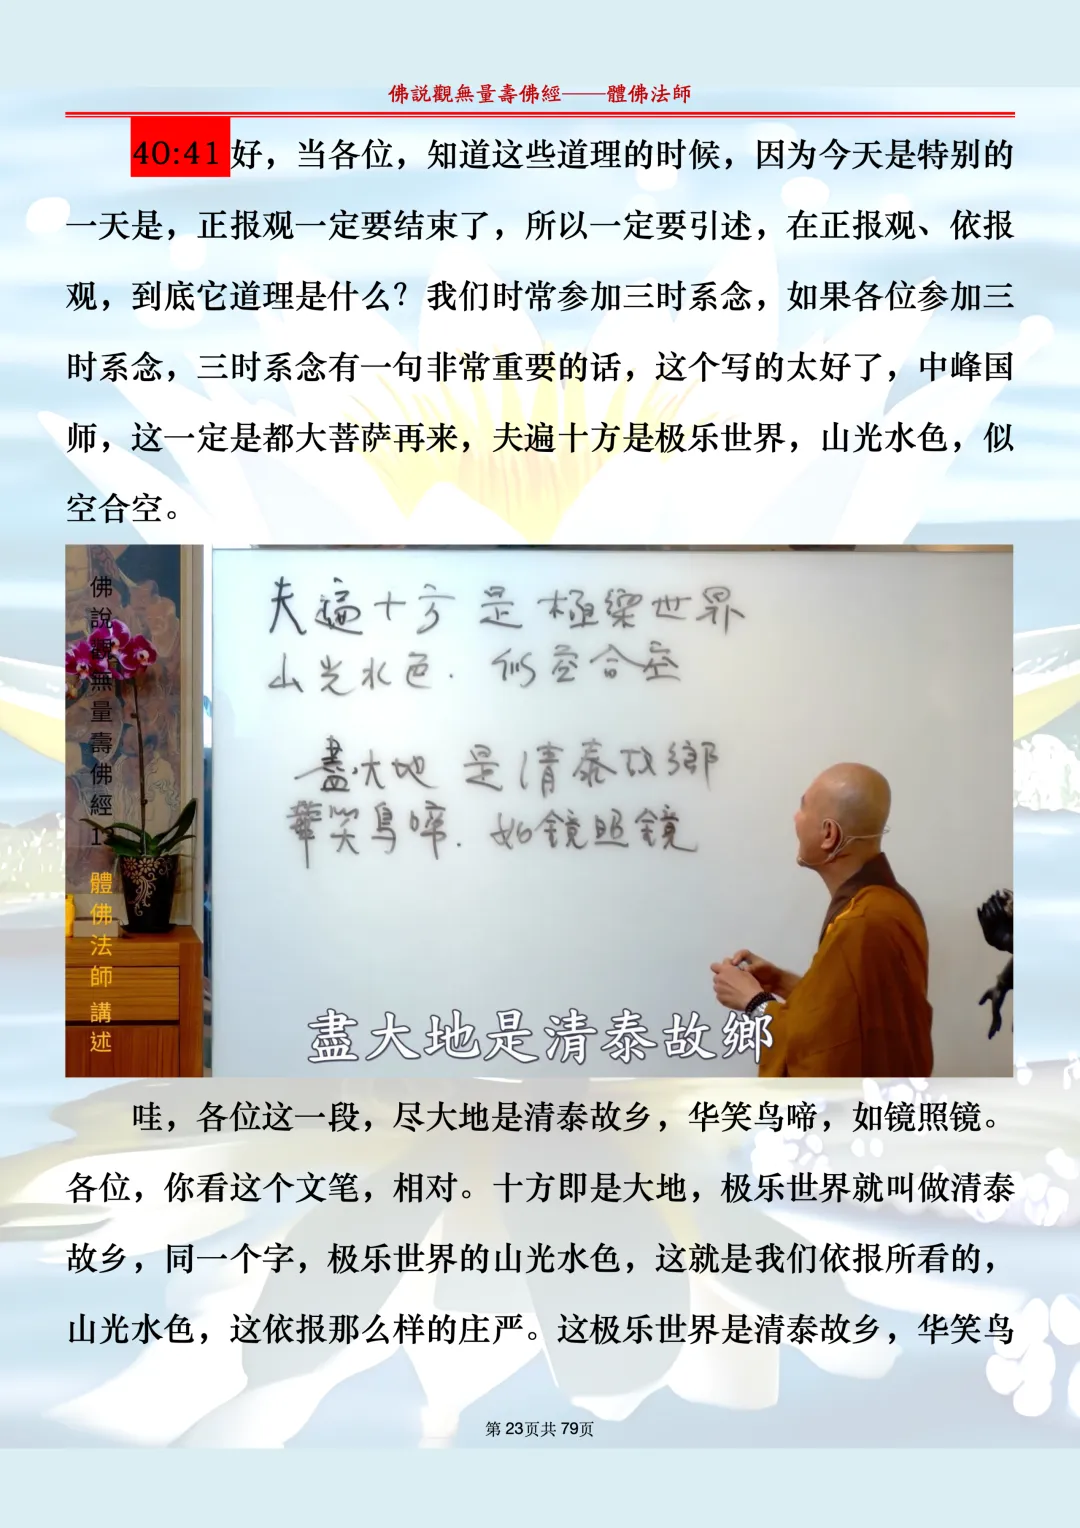 佛說觀無量壽佛經——體佛法師
40:41好，当各位，知道这些道理的时候，因为今天是特别的
一天是，正报观一定要结束了，所以一定要引述，在正报观、依报
观，到底它道理是什么？我们时常参加三时系念，如果各位参加三
时系念，三时系念有一句非常重要的话，这个写的太好了，中峰国
师，这一定是都大菩萨再来，夫遍十方是极乐世界，山光水色，似
空合空。
佛說觀無量壽佛經12
體佛法師 講述
夫遍十方 是 極樂世界
山光水色. 似空合空
盡大地 是清泰故鄉
華笑鳥啼. 如鏡照鏡
盡大地是清泰故鄉
哇，各位这一段，尽大地是清泰故乡，华笑鸟啼，如镜照镜。
各位，你看这个文笔，相对。十方即是大地，极乐世界就叫做清泰
故乡，同一个字，极乐世界的山光水色，这就是我们依报所看的，
山光水色，这依报那么样的庄严。这极乐世界是清泰故乡，华笑鸟
第 23页共 79页